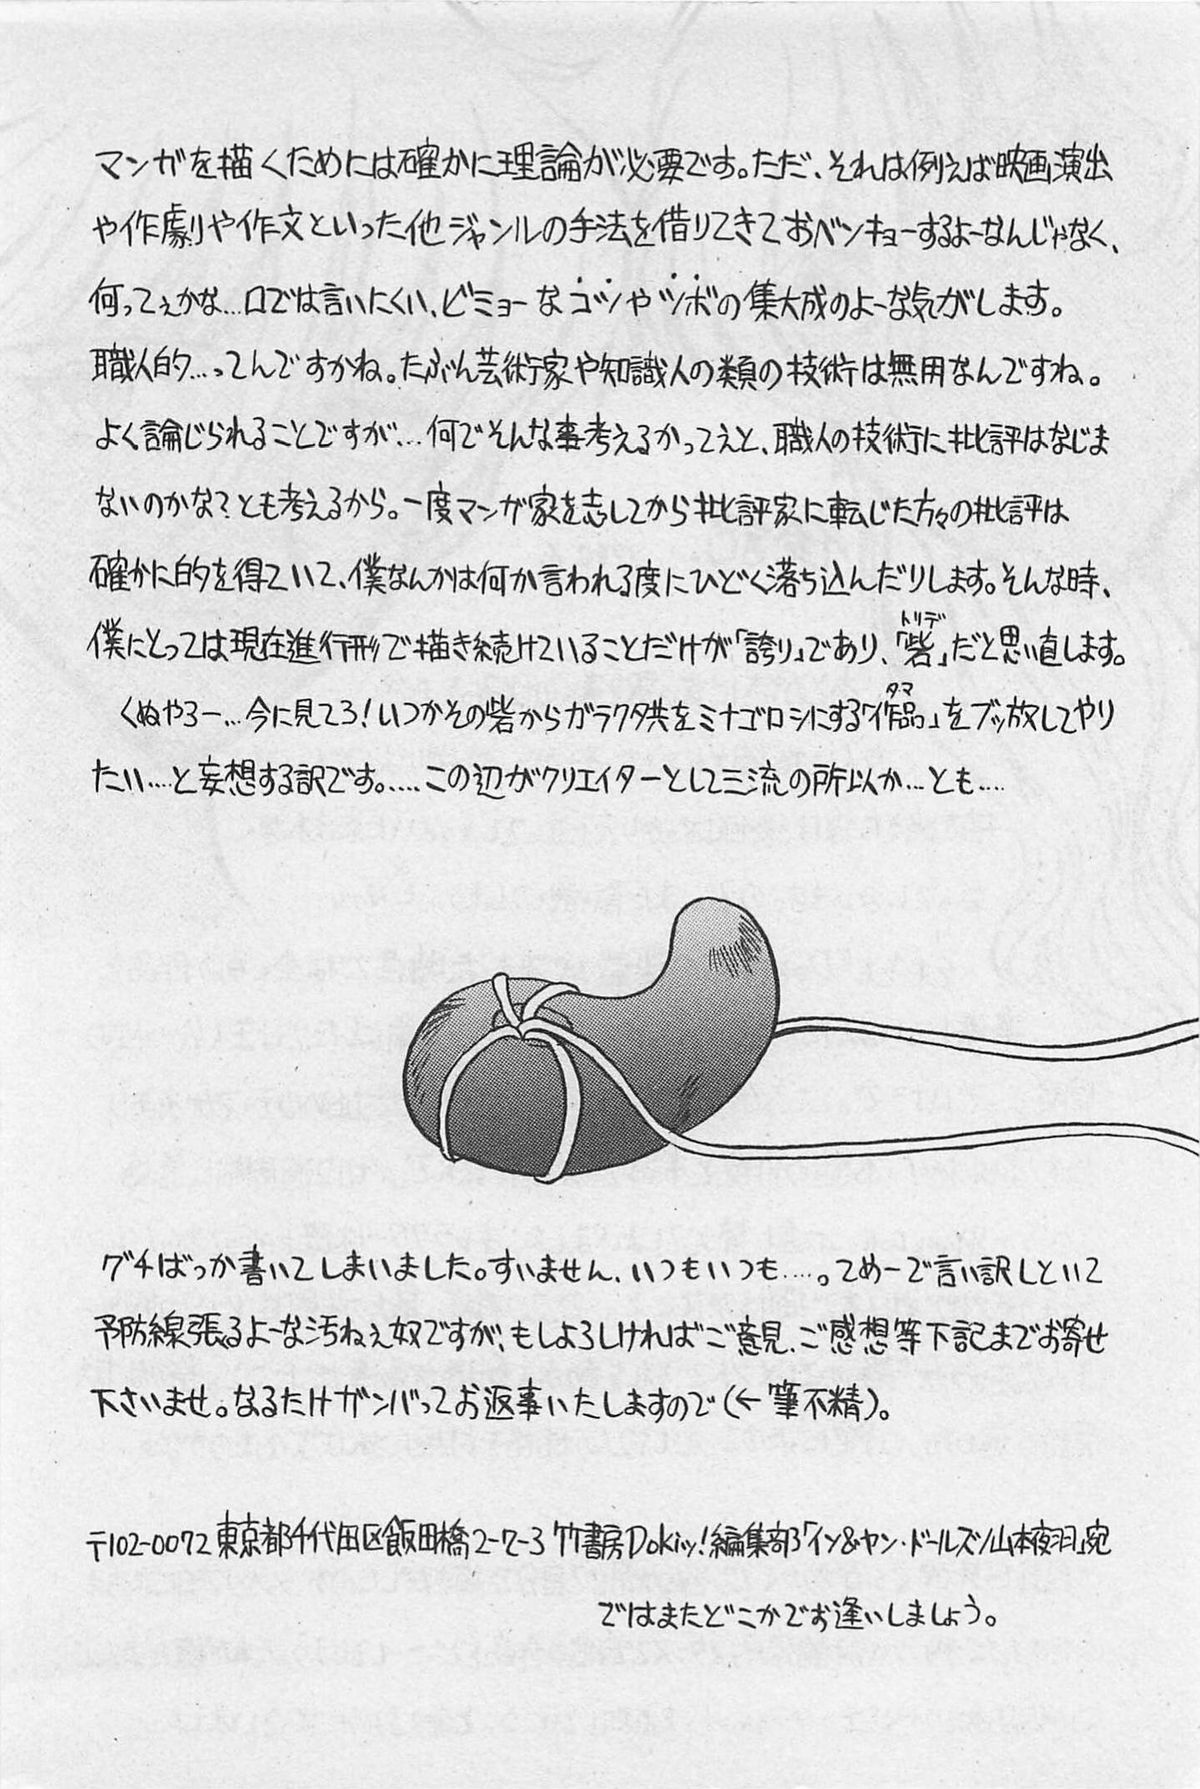 マンガを描くためには確かに理論が必要です。ただ、それは例えば映画演出
や作劇や作文といった他ジャンルの手法を借りてきておベンキョーするよーなんじゃなく、
何ってぇかな…口では言いにくい、ビミョーなコツやツボの集大成のよーな気がします。
職人的…ってんですかね。たぶん芸術家や知識人の類の技術は無用なんですね。
よく論じられることですが…何でそんな事考えるかってえと、職人の技術に批評はなじま
ないのかな?とも考えるから。一度マンガ家を志してから批評家に転じた方々の批評は
確かに的を得ていて、僕なんかは何か言われる度にひどく落ち込んだりします。そんな時、
僕にとっては現在進行形で描き続けていることだけが「誇り」であり、「砦」だと思い直します。
トリデ
くぬやろー…今に見てろ!いつかその砦からガラクタ共をミナゴロシにする「作品」をブッ放してやり
タマ
たい…と妄想する訳です。……この辺がクリエイターとして三流の所以か…とも…
グチばっか書いてしまいました。すいません、いつもいつも……。てめーで言い訳しといて
予防線張るよーな汚ねぇ奴ですが、もしよろしければご意見、ご感想等下記までお寄せ
下さいませ。なるたけガンバってお返事いたしますので(←筆不精)。
〒102-0072 東京都千代田区飯田橋2-7-3 竹書房Dokiッ!編集部「イン&ヤン・ドールズ/山本夜羽」宛
ではまたどこかでお逢いしましょう。